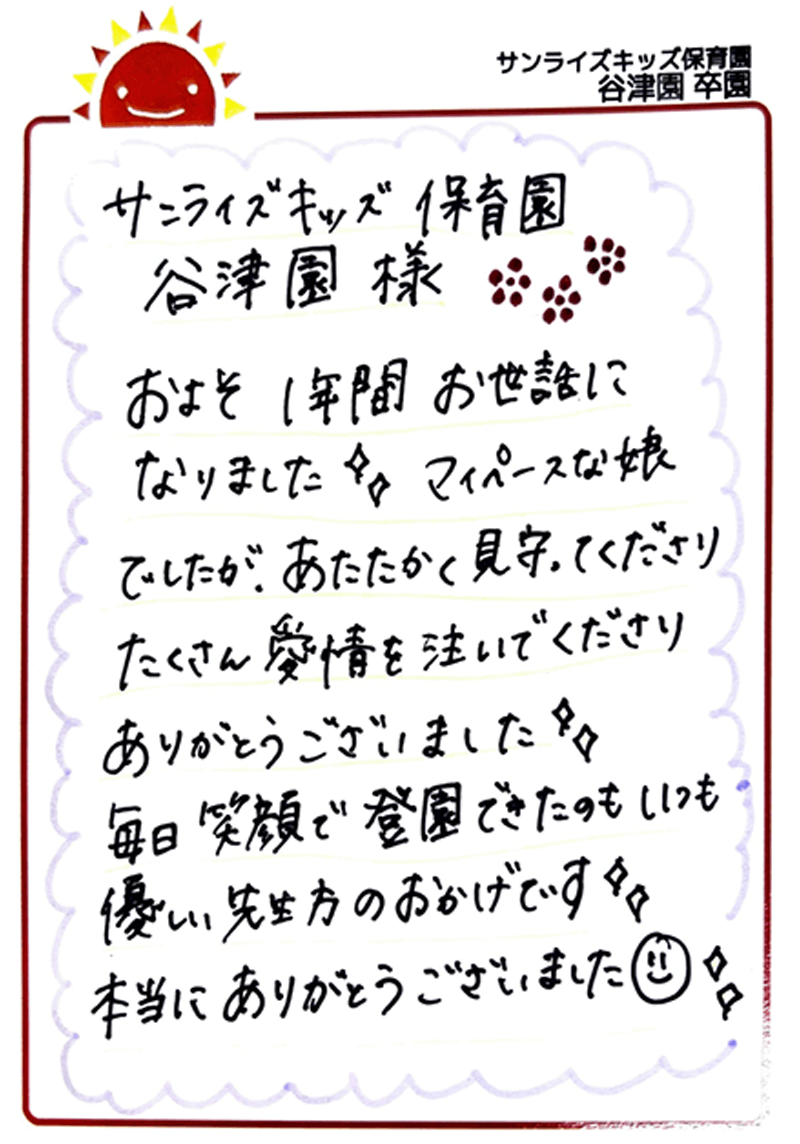 サンライズキッズ保育園
谷津園 卒園
サンライズキッズ 保育園
谷津園 様
およそ 1年間 お世話に
なりました マイペースな娘
でしたが、あたたかく見守ってくださり
たくさん愛情を注いでくださり
ありがとうございました
毎日笑顔で登園できたのもいつも
優しい先生方のおかげです
本当にありがとうございました